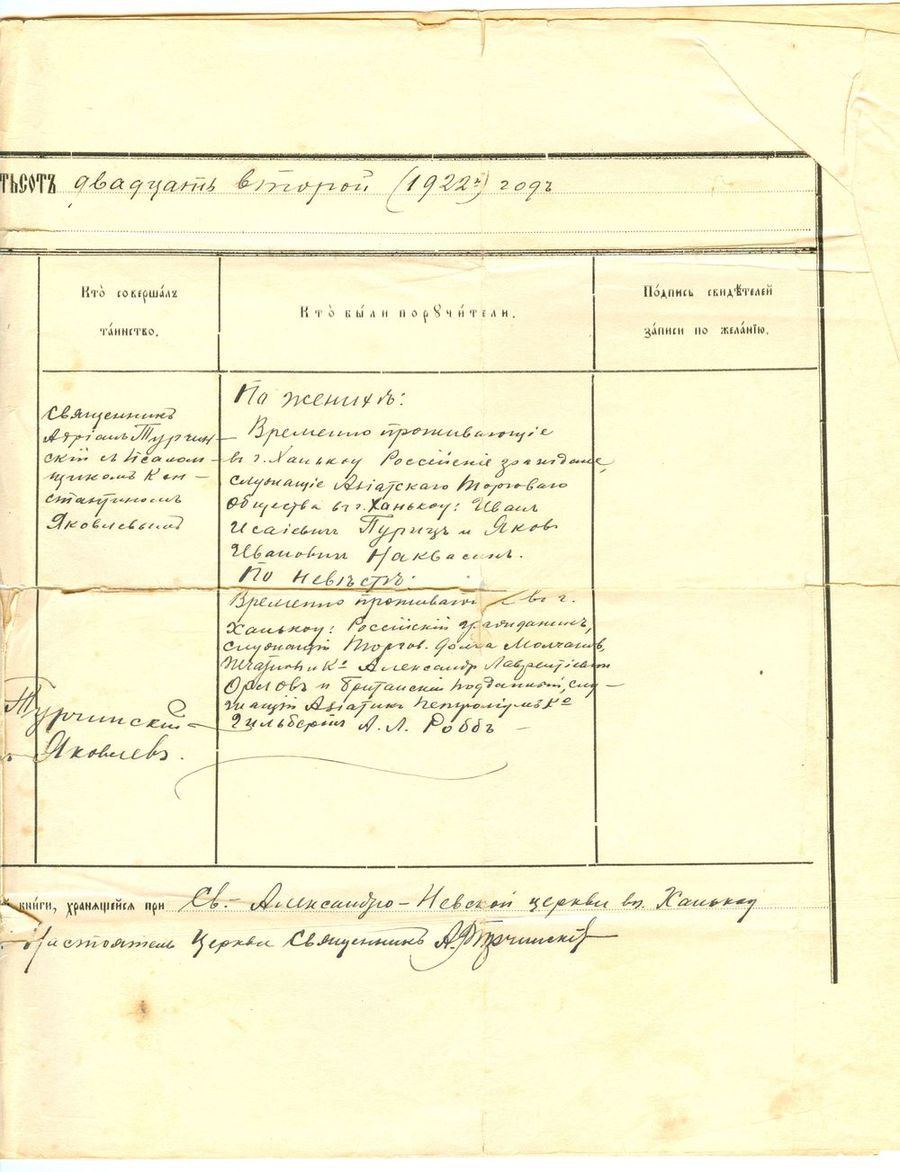 тьсотъ двадцать второй (1922й) годъ
Кто совершалъ
таинство.
Кто были поручители.
Подпись свидѣтелей
записи по желанію.
Священникъ
Адріанъ Турчин-
скій съ псалом-
щикомъ Кон-
стантиномъ
Яковлевымъ
По женихѣ:
Временно проживающіе
въ г. Ханькоу Россійскіе граждане,
служащіе Азіатскаго Торговаго
Общества въ г. Ханькоу: Иванъ
Исаіевичъ Пурицъ и Яковъ
Ивановичъ Наквасинъ.
По невѣстѣ:
Временно проживающ въ г.
Ханькоу: Россійскій гражданинъ,
служащій Торгов. Дома Молчановъ,
Печатновъ и Ко Александръ Лаврентіевичъ
Орловъ и Британскій подданный, слу-
жащій Азіатикъ Петроліумъ Ко
Гильбертъ А. Л. Роббъ
Турчинскій
Яковлевъ.
книги, хранящейся при Св.-Александро-Невской церкви въ Ханькоу
Настоятель Церкви Священникъ А. Турчинскій